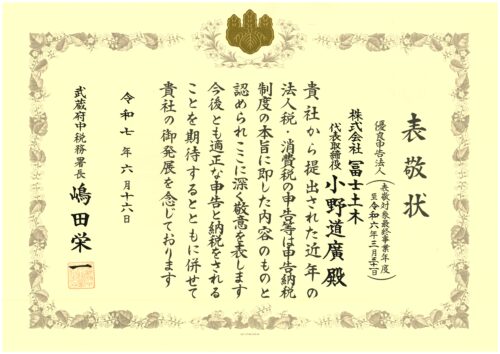 表敬状
優良申告法人
(表敬対象最終事業年度
至令和六年三月三十一日)
株式会社 冨士土木
代表取締役 小野道廣 殿
貴社から提出された近年の
法人税・消費税の申告等は申告納税
制度の本旨に即した内容のものと
認められここに深く敬意を表します
今後とも適正な申告と納税をされる
ことを期待するとともに併せて
貴社の御発展を念じております
令和七年六月十六日
武蔵府中税務署長 嶋田栄一